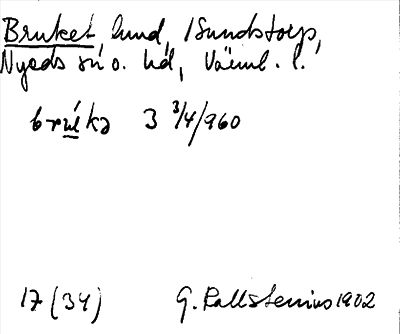 Bruket, lund, /Sundstorp,
Nyeds sn o. hd, Värml. l.
brúka 3 3/4/960
17 (34) G. Kallstenius 1902